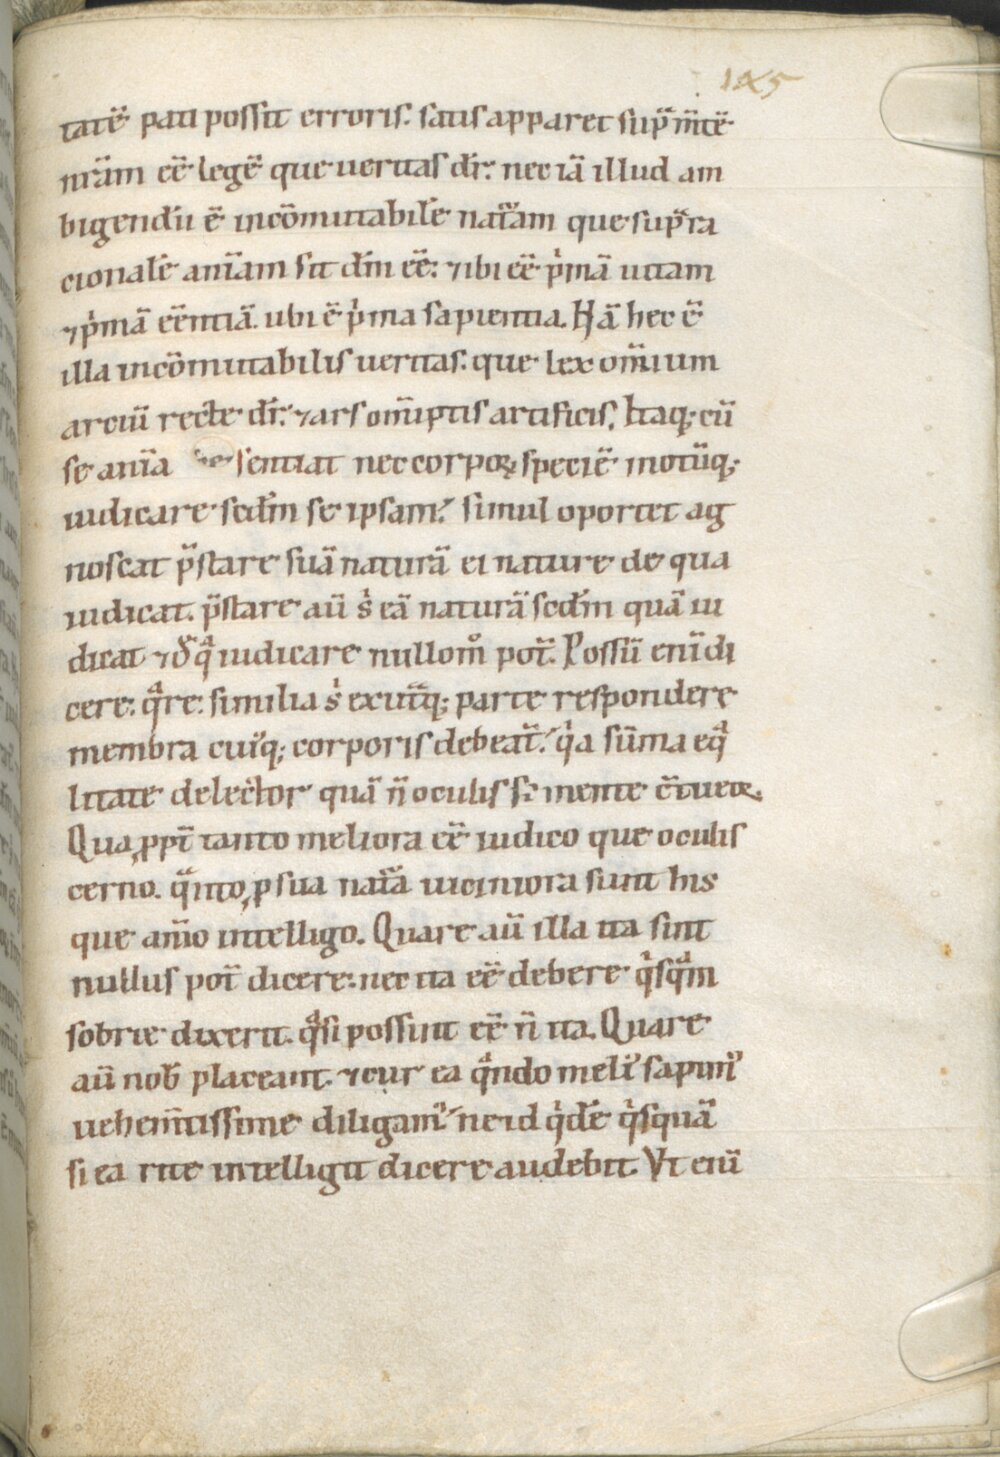 145
tatē pati possit erroris. satis apparet sup̄ m̄tē
nr̄am eē legē que ueritas dr̄. nec iā illud am
bigendū ē incōmutabilē nat̄am que sup̄ra
cionalē anīam sit dm̄ eē. ⁊ ibi eē pͥmā uitam
⁊ pͥmā eēntiā. ubi ē pͥma sapientia. Nā hec ē
illa incōmutabilis ueritas. que lex om̄ium
arciū recte dr̄. ⁊ ars om̄iptis artificis. Itaq; cū
se anīa sentiat nec corpoꝝ speciē motūq;
iudicare scdm̄ se ipsam. simul oportet ag
noscat p̄stare suā naturā ei nature de qua
iudicat. p̄stare aū sͥ eā naturā scdm̄ quā iu
dicat ⁊ đ qͣ iudicare nullom̊ pot̄. Possū enī di
cere. qͣre. similia sͥ ex ut̄q; parte respondere
membra cuiꝰq; corporis debeat̄. qͥa sūma eqͣ
litate delector quā n̄ oculis s; mente c̄tueoꝛ.
Qua ꝓpt̄ tanto meliora eē iudico que oculis
cerno. qͣnto ꝓ sua nat̄a uiciniora sunt his
que am̄o intelligo. Quare aū illa ita sint
nullus pot̄ dicere. nec ita eē debere qͥsqͣm
sobrie dixerit. qͣsi possint eē n̄ ita. Quare
aū nob̄ placeant. ⁊ cur ea qͣndo meliꝰ sapimꝰ
uehem̄tissime diligamꝰ. ne id qͥdē qͥsquā
si ea rite intelligit dicere audebit. Vt enī